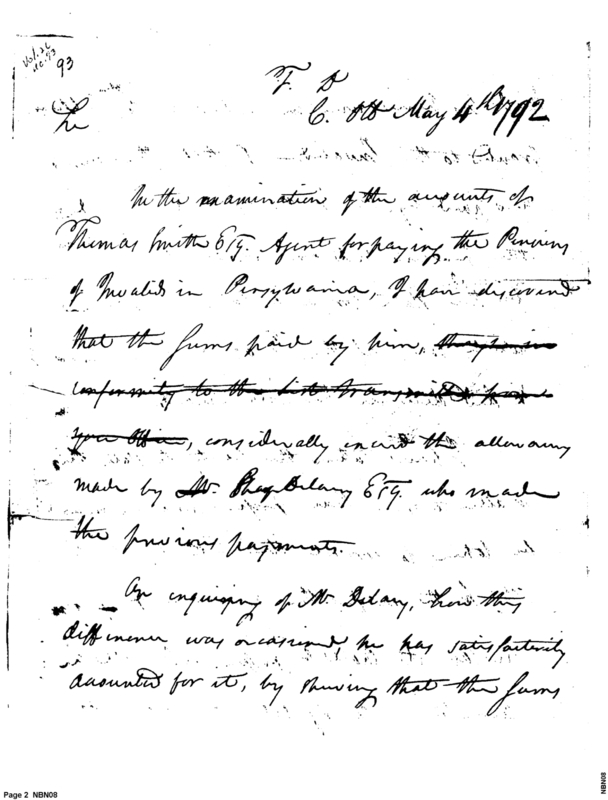 Vol. 26
No. 93
93
T. D
C. Off May 4th 1792
Sir
In the examination of the accounts of
Thomas Smith Esq. Agent for paying the Pensions
of Invalids in Pensylvania, I have discovered
that the sums paid by him, though in
conformity to the list transmitted from
your Office, considerably exceed the allowances
made by Mr. Delany Esq. who made
the previous payments.
On inquiring of Mr. Delany, how this
difference was occasioned, he has satisfactorily
accounted for it, by shewing that the sums
Page 2 NBN08
NBN08